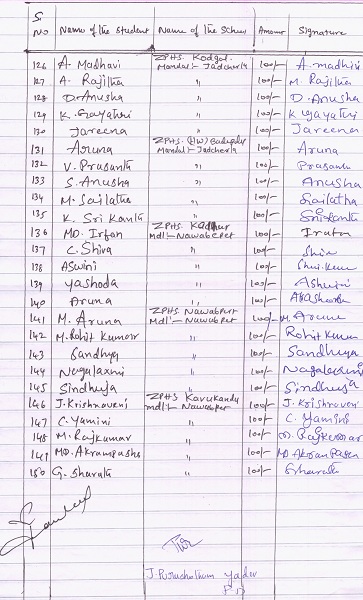 S
NO Name of the Student Name of the School Amount Signature
126 A. Madhavi ZPHS. Kodgal. Mandal:- Jadcherla 100/- A. madhavi
127 A. Rajitha " 100/- M. Rajitha
128 D. Anusha " 100/- D. Anusha
129 K. Gayathri " 100/- K gayathri
130 Jareena " 100/- Jareena
131 Aruna ZPHS. (HW) Mandal:- Jadcherla 100/- Aruna
132 V. Prasanta " 100/- Prasanta
133 S. Anusha " 100/- Anusha
134 M. Sailatha " 100/- Sailatha
135 K. Sri Kanth " 100/- Srikanth
136 MD. Irfan ZPHS Mdl:- Nawabpet 100/- Irfan
137 C. Shiva " 100/- Shiva
138 Aswini " 100/-
139 Yashoda " 100/- Ashwini
140 Aruna " 100/-
141 M. Aruna ZPHS Nawabpet Mdl:- Nawabpet 100/- M. Aruna
142 M. Rohit Kumar " 100/- Rohit Kumar
143 Sandhya " 100/- Sandhya
144 Nagalaxmi " 100/- Nagalaxmi
145 Sindhuja " 100/- Sindhuja
146 J. Krishnaveni ZPHS mdl:- Nawabpet 100/- J. Krishnaveni
147 C. Yamini " 100/- C. Yamini
148 M. Rajkumar " 100/- M. Rajkumar
149 MD. Akrampasha " 100/- MD Akram Pasha
150 G. Bharath " 100/- Bharath
J. Purushotham Yadav